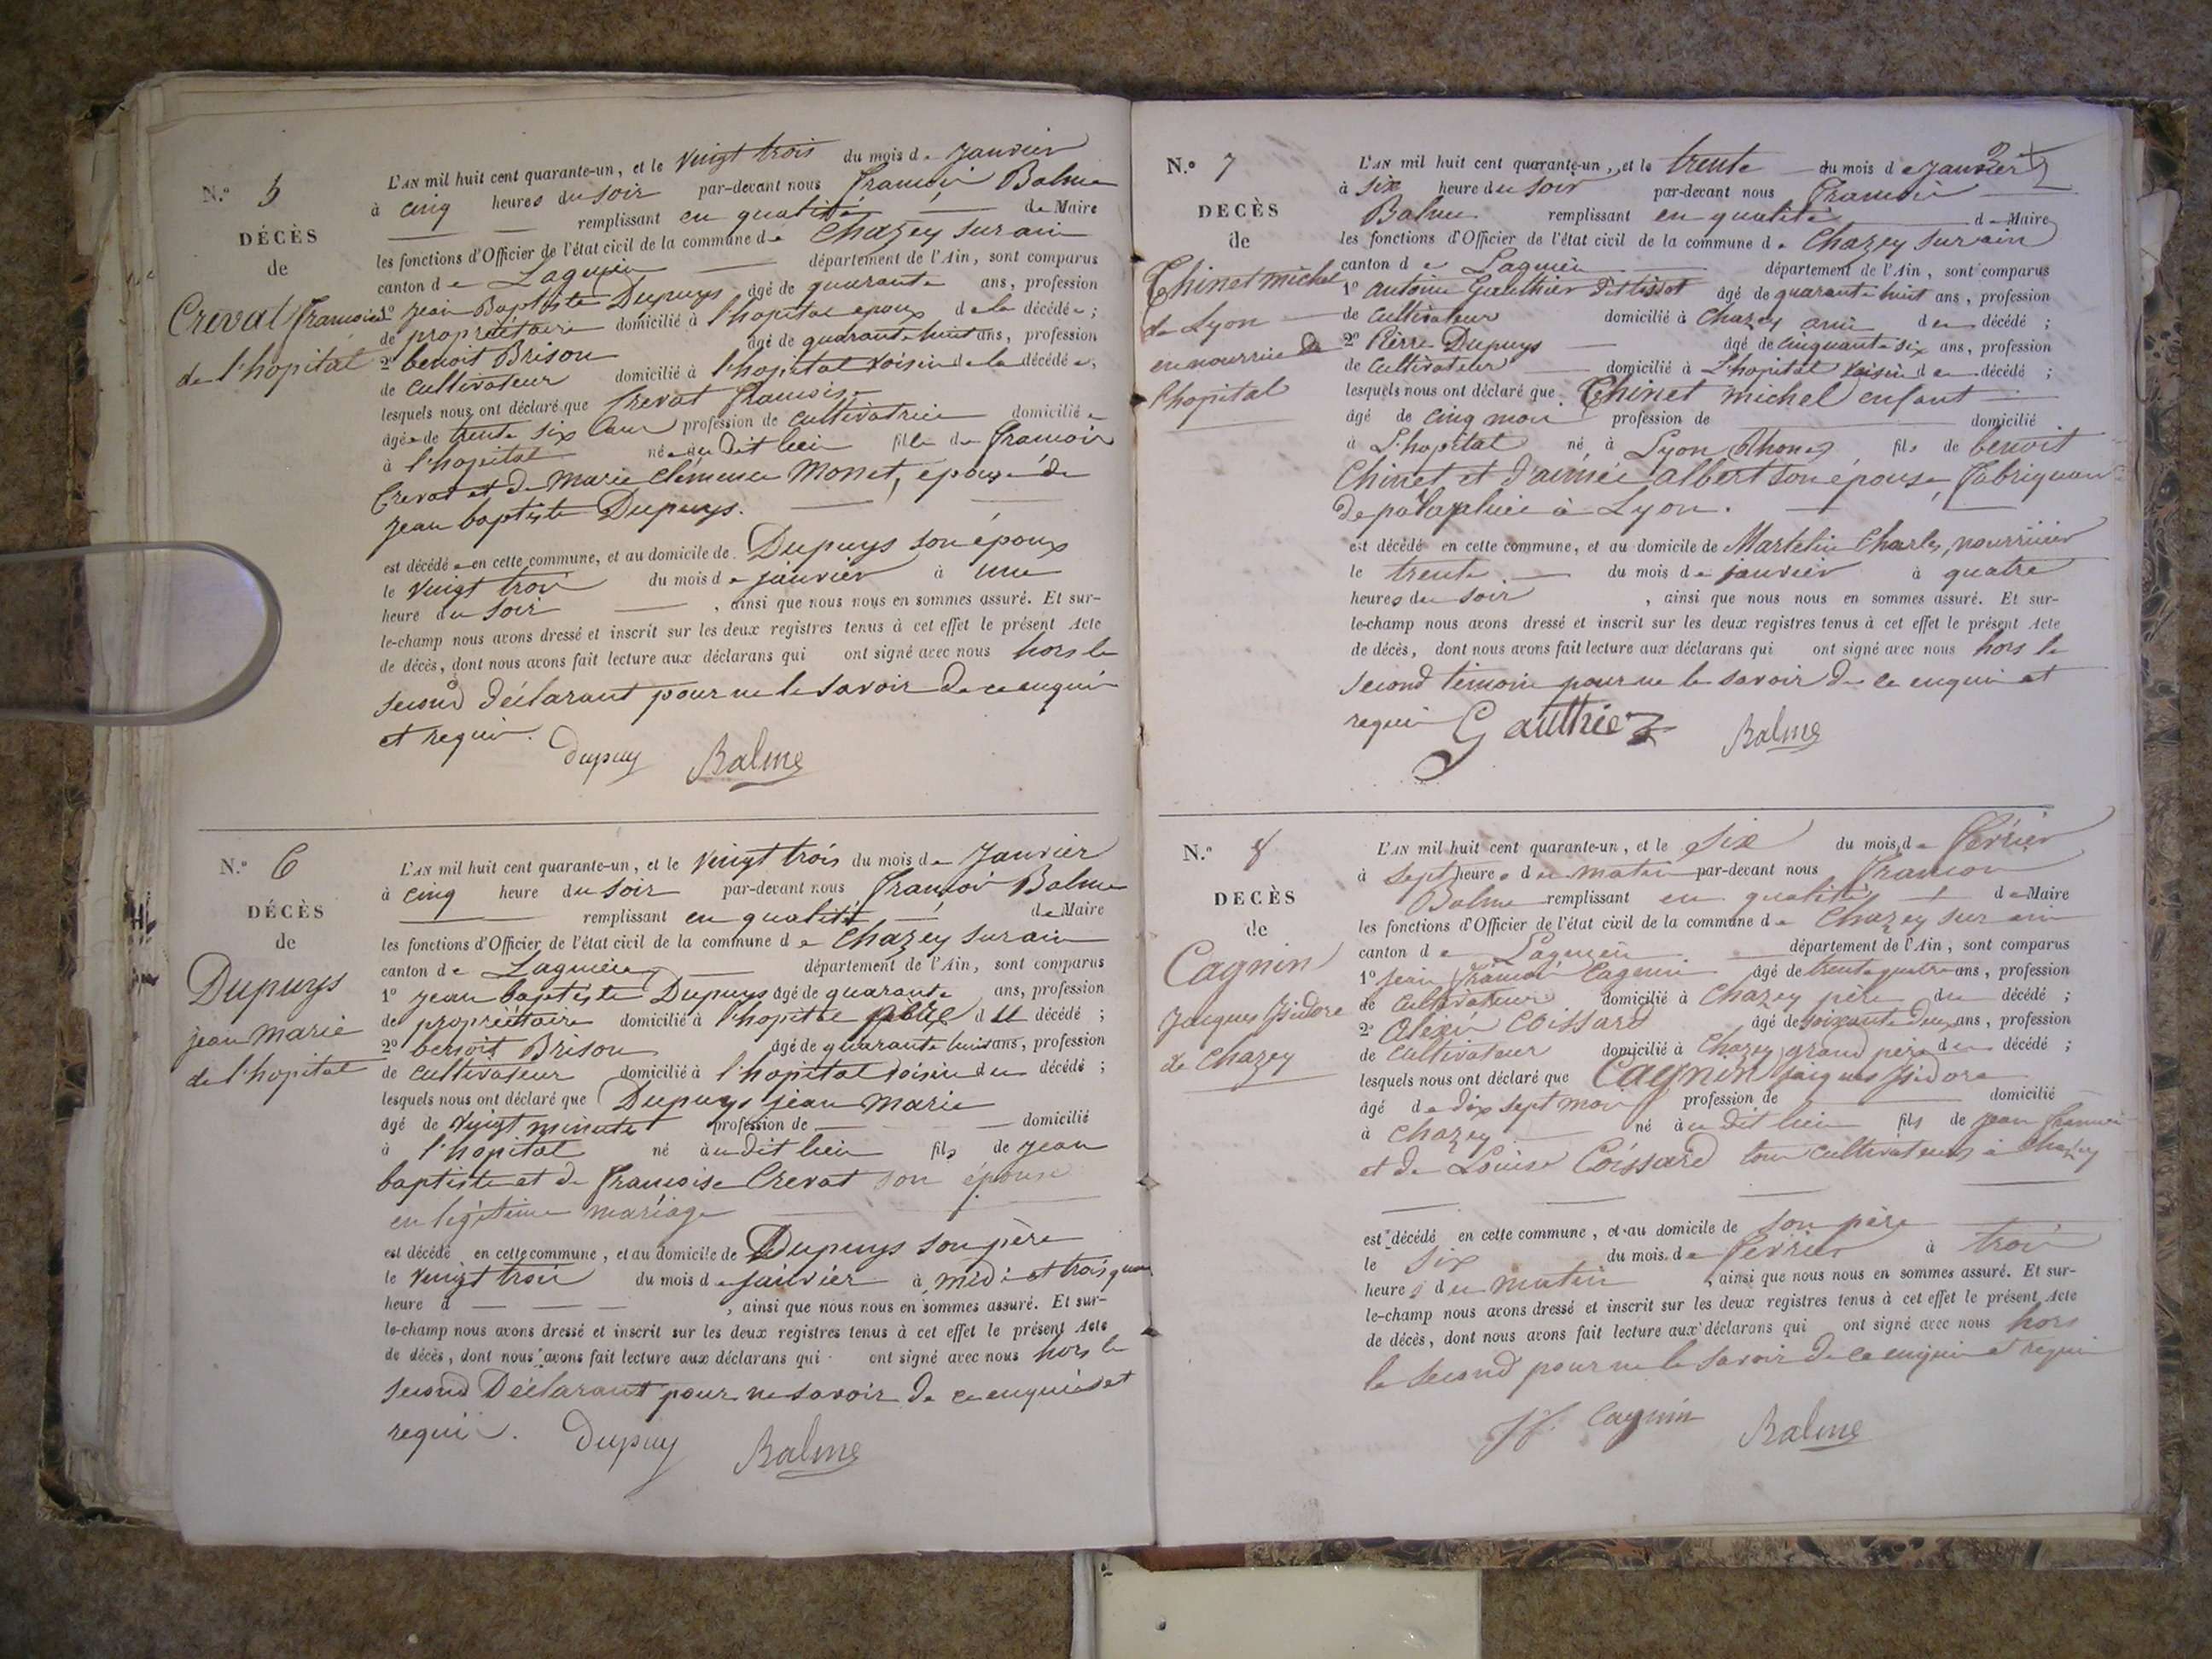 N.º 5
DÉCÈS
de
Crevat françoise
de l'hopital
L'AN mil huit cent quarante-un, et le vingt trois du mois de Janvier
à cinq heures du soir par-devant nous françois Balme
remplissant en qualité de Maire
les fonctions d'Officier de l'état civil de la commune de Chazey sur ain
canton de Lagnieu département de l'Ain, sont comparus
1º jean Baptiste Dupuys âgé de quarante ans, profession
de propriétaire domicilié à l'hopital epoux de la décédée;
2º benoit Brison âgé de quarante huit ans, profession
de cultivateur domicilié à l'hopital voisin de la décédée,
lesquels nous ont déclaré que Crevat françoise
âgée de trente six ans profession de cultivatrice domiciliée
à l'hopital née au dit lieu fille de françois
Crevat et de marie clémence Monet, épouse de
jean baptiste Dupuys.
est décédée en cette commune, et au domicile de Dupuys son époux
le vingt trois du mois de janvier à une
heure du soir, ainsi que nous nous en sommes assuré. Et sur-
le-champ nous avons dressé et inscrit sur les deux registres tenus à cet effet le présent Acte
de décès, dont nous avons fait lecture aux déclarans qui ont signé avec nous hors le
second déclarant pour ne le savoir de ce enquis
et requis.
Dupuy Balme
N.º 6
DÉCÈS
de
Dupuys
jean marie
de l'hopital
L'AN mil huit cent quarante-un, et le vingt trois du mois de Janvier
à cinq heure du soir par-devant nous françois Balme
remplissant en qualité de Maire
les fonctions d'Officier de l'état civil de la commune de Chazey sur ain
canton de Lagnieu département de l'Ain, sont comparus
1º jean baptiste Dupuys âgé de quarante ans, profession
de propriétaire domicilié à l'hopital père du décédé;
2º benoit Brison âgé de quarante huit ans, profession
de cultivateur domicilié à l'hopital voisin du décédé;
lesquels nous ont déclaré que Dupuys jean marie
âgé de vingt minutes profession de domicilié
à l'hopital né au dit lieu fils de jean
baptiste et de françoise Crevat son épouse
en légitime mariage
est décédé en cette commune, et au domicile de Dupuys son père
le vingt trois du mois de janvier à midi et trois quart
heure d, ainsi que nous nous en sommes assuré. Et sur-
le-champ nous avons dressé et inscrit sur les deux registres tenus à cet effet le présent Acte
de décès, dont nous avons fait lecture aux déclarans qui ont signé avec nous hors le
second Déclarant pour ne savoir de ce enquis et
requis.
Dupuy Balme
N.º 7
DECÈS
de
Chinet michel
de Lyon
en nourrice de
l'hopital
L'AN mil huit cent quarante-un, et le trente du mois de janvier
à six heure du soir par-devant nous françois
Balme remplissant en qualité de Maire
les fonctions d'Officier de l'état civil de la commune de Chazey sur ain
canton de Lagnieu département de l'Ain, sont comparus
1º antoine Gauthier dit tissot âgé de quarante huit ans, profession
de cultivateur domicilié à Chazey ami du décédé;
2º Pierre Dupuys âgé de cinquante six ans, profession
de cultivateur domicilié à L'hopital voisin du décédé;
lesquels nous ont déclaré que Chinet michel enfant
âgé de cinq mois profession de domicilié
à L'hopital né à Lyon Rhone fils de benoit
Chinet et d'aimée albert son épouse, fabriquant
de parapluie à Lyon.
est décédé en cette commune, et au domicile de Martelin Charles, nourricier
le trente du mois de janvier à quatre
heures du soir, ainsi que nous nous en sommes assuré. Et sur-
le-champ nous avons dressé et inscrit sur les deux registres tenus à cet effet le présent Acte
de décès, dont nous avons fait lecture aux déclarans qui ont signé avec nous hors le
second témoin pour ne le savoir de ce enquis et
requis Gauthier Balme
N.º 8
DECÈS
de
Cagnin
Jacques Isidore
de Chazey
L'AN mil huit cent quarante-un, et le six du mois de février
à sept heures du matin par-devant nous françois
Balme remplissant en qualité de Maire
les fonctions d'Officier de l'état civil de la commune de Chazey sur ain
canton de Lagnieu département de l'Ain, sont comparus
1º jean françois Cagnin âgé de trente quatre ans, profession
de cultivateur domicilié à Chazey père du décédé;
2º alexis Coissard âgé de soixante deux ans, profession
de cultivateur domicilié à Chazey grand père du décédé;
lesquels nous ont déclaré que Cagnin jacques Isidore
âgé de dix sept mois profession de domicilié
à Chazey né au dit lieu fils de jean françois
et de Louise Coissard tous cultivateurs à Chazey
est décédé en cette commune, et au domicile de son père
le six du mois de février à trois
heures du matin, ainsi que nous nous en sommes assuré. Et sur-
le-champ nous avons dressé et inscrit sur les deux registres tenus à cet effet le présent Acte
de décès, dont nous avons fait lecture aux déclarans qui ont signé avec nous hors
le second pour ne le savoir de ce enquis et requis
Cagnin Balme